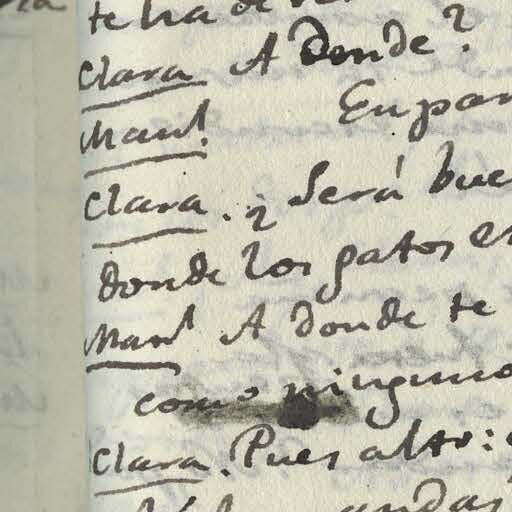 te ha de
Clara A Donde?
Manl. En par
Clara. ¿ Será bue
donde los gatos es
Manl A donde te
como ninguno
Clara. Pues alto:
andas